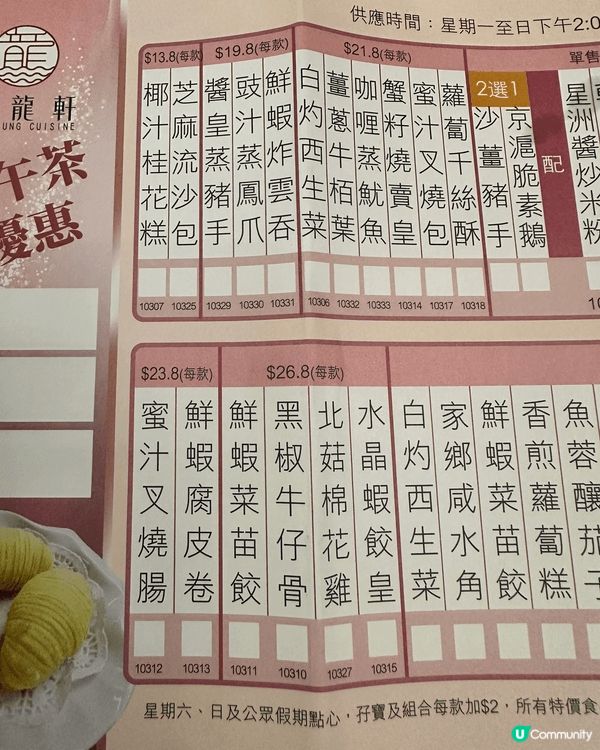 龍
龍軒
UNG CUISINE
午茶
優惠
供應時間：星期一至日下午2:0
$13.8(每款)
椰汁桂花糕
10307
芝麻流沙包
10325
$19.8(每款)
醬皇蒸豬手
10329
豉汁蒸鳳爪
10330
鮮蝦炸雲吞
10331
$21.8(每款)
白灼西生菜
10306
薑蔥牛栢葉
10332
咖喱蒸魷魚
10333
蟹籽燒賣皇
10314
蜜汁叉燒包
10317
蘿蔔千絲酥
10318
2選1
沙薑豬手
京滬脆素鵝
配
單售
星洲醬炒米粉
10
$23.8(每款)
蜜汁叉燒腸
10312
鮮蝦腐皮卷
10313
$26.8(每款)
鮮蝦菜苗餃
10311
黑椒牛仔骨
10310
北菇棉花雞
10327
水晶蝦餃皇
10315
白灼西生菜
家鄉咸水角
鮮蝦菜苗餃
香煎蘿蔔糕
魚蓉釀茄子
星期六、日及公眾假期點心，孖寶及組合每款加$2，所有特價食
U Community